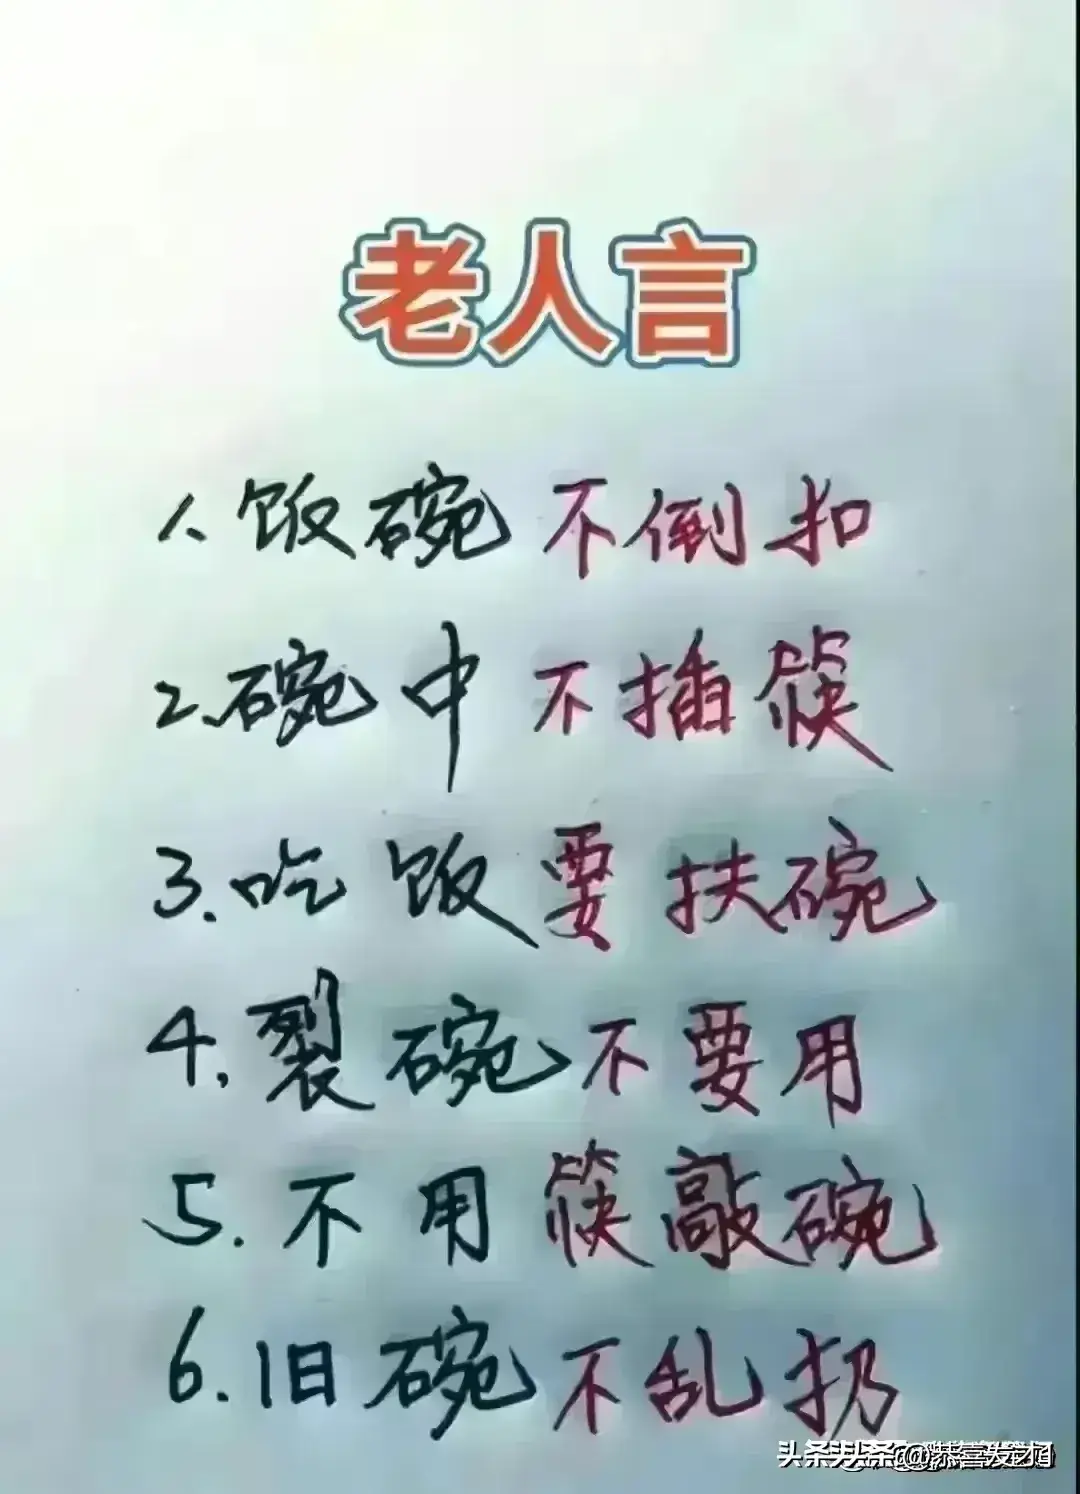 老人言
1、饭碗不倒扣
2、碗中不插筷
3.吃饭要扶碗
4,裂碗不要用
5.不用筷敲碗
6.旧碗不乱扔
头条 @恭喜发